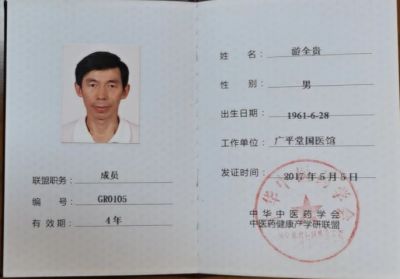 联盟职务： 成员
编 号： GR0105
有 效 期： 4年
姓 名： 游全贵
性 别： 男
出生日期： 1961-6-28
工作单位： 广平堂国医馆
发证时间： 2017年5月5日
中华中医药学会
中医药健康产学研联盟